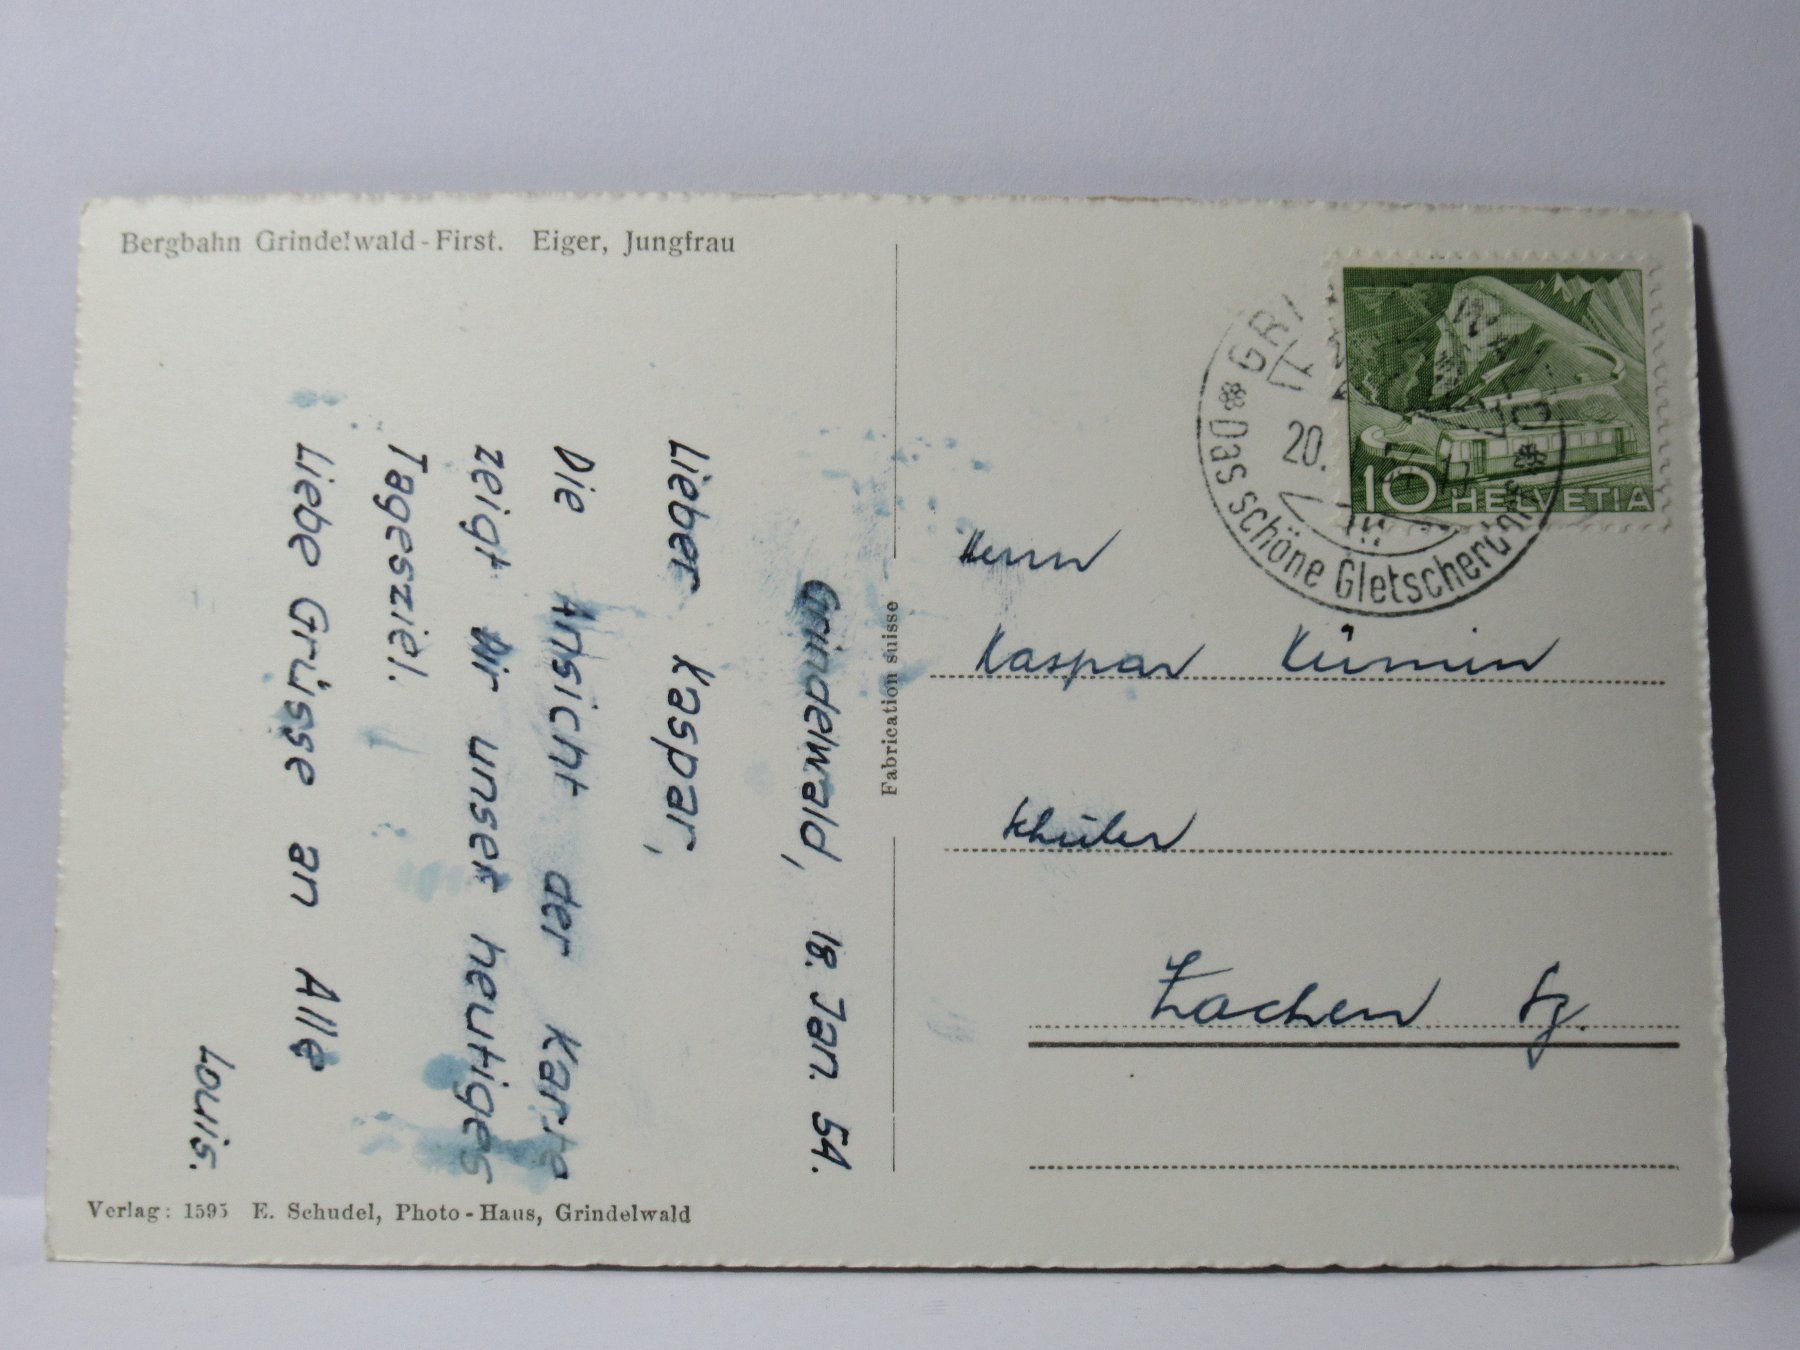 Bergbahn Grindelwald - First. Eiger, Jungfrau
Grindelwald, 18. Jan. 54.
Lieber Kaspar,
Die Ansicht der Karte
zeigt Dir unser heutiges
Tagesziel.
Liebe Grüsse an Alle
Louis.
Verlag: 1595 E. Schudel, Photo-Haus, Grindelwald
Fabrication suisse
10 HELVETIA
20.
Das schöne Gletscherdorf
Herrn
Kaspar Kümin
Schüler
Lachen Sz.